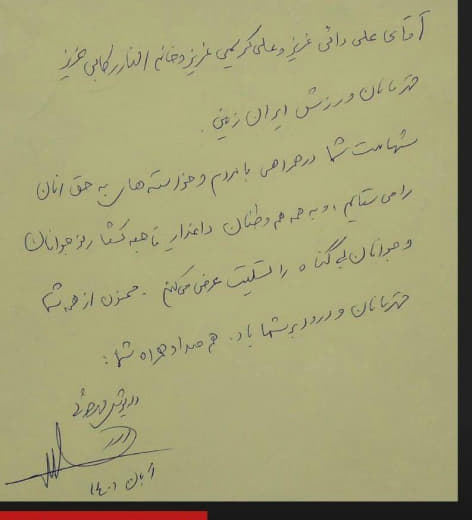 آقای علی دائی عزیز و علی کریمی عزیز و خانم الناز رکابی عزیز
قهرمانان ورزش ایران زمین.
شهامت شما در همراهی با مردم و خواسته های به حق آنان
را می ستایم، و به همه هم وطنان داغدار فاجعه کشتار نوجوانان
و جوانان بی گناه را تسلیت عرض می کنم. ممنون از همه شما
قهرمانان و درود بر شما باد. هم صدا و همراه شما:
داریوش مهرجوئی
آبان ۱۴۰۱